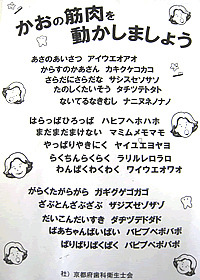 かおの筋肉を
動かしましょう
あさのあいさつ アイウエオアオ
からすのかあさん カキクケコカコ
さらだにさらだな サシスセソサソ
たのしくたいそう タチツテトタト
ないてるなきむし ナニヌネノナノ
はらっぱひろっぱ ハヒフヘホハホ
まだまだまけない マミムメモマモ
やっぱりやきにく ヤイユエヨヤヨ
らくちんらくらく ラリルレロラロ
わんぱくわくわく ワイウエオワオ
がらくたがらがら ガギグゲゴガゴ
ざぶとんざぶざぶ ザジズゼゾザゾ
だいこんだいすき ダヂヅデドダド
ばあちゃんばいばい バビブベボバボ
ぱりぱりぱくぱく パピプペポパポ
社）京都府歯科衛生士会